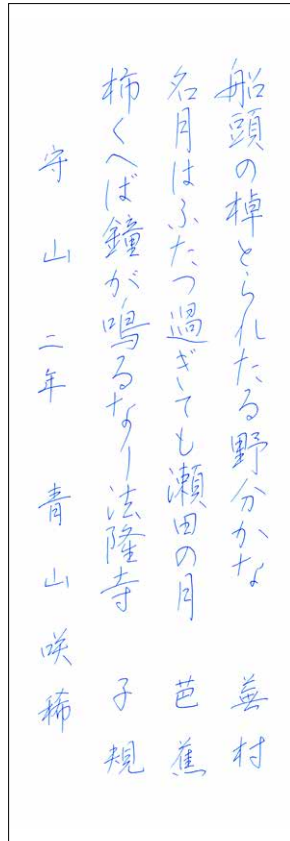 船頭の棹とられたる野分かな 蕪村
名月はふたつ過ぎても瀬田の月 芭蕉
柿くへば鐘が鳴るなり法隆寺 子規
守山 二年 青山咲稀